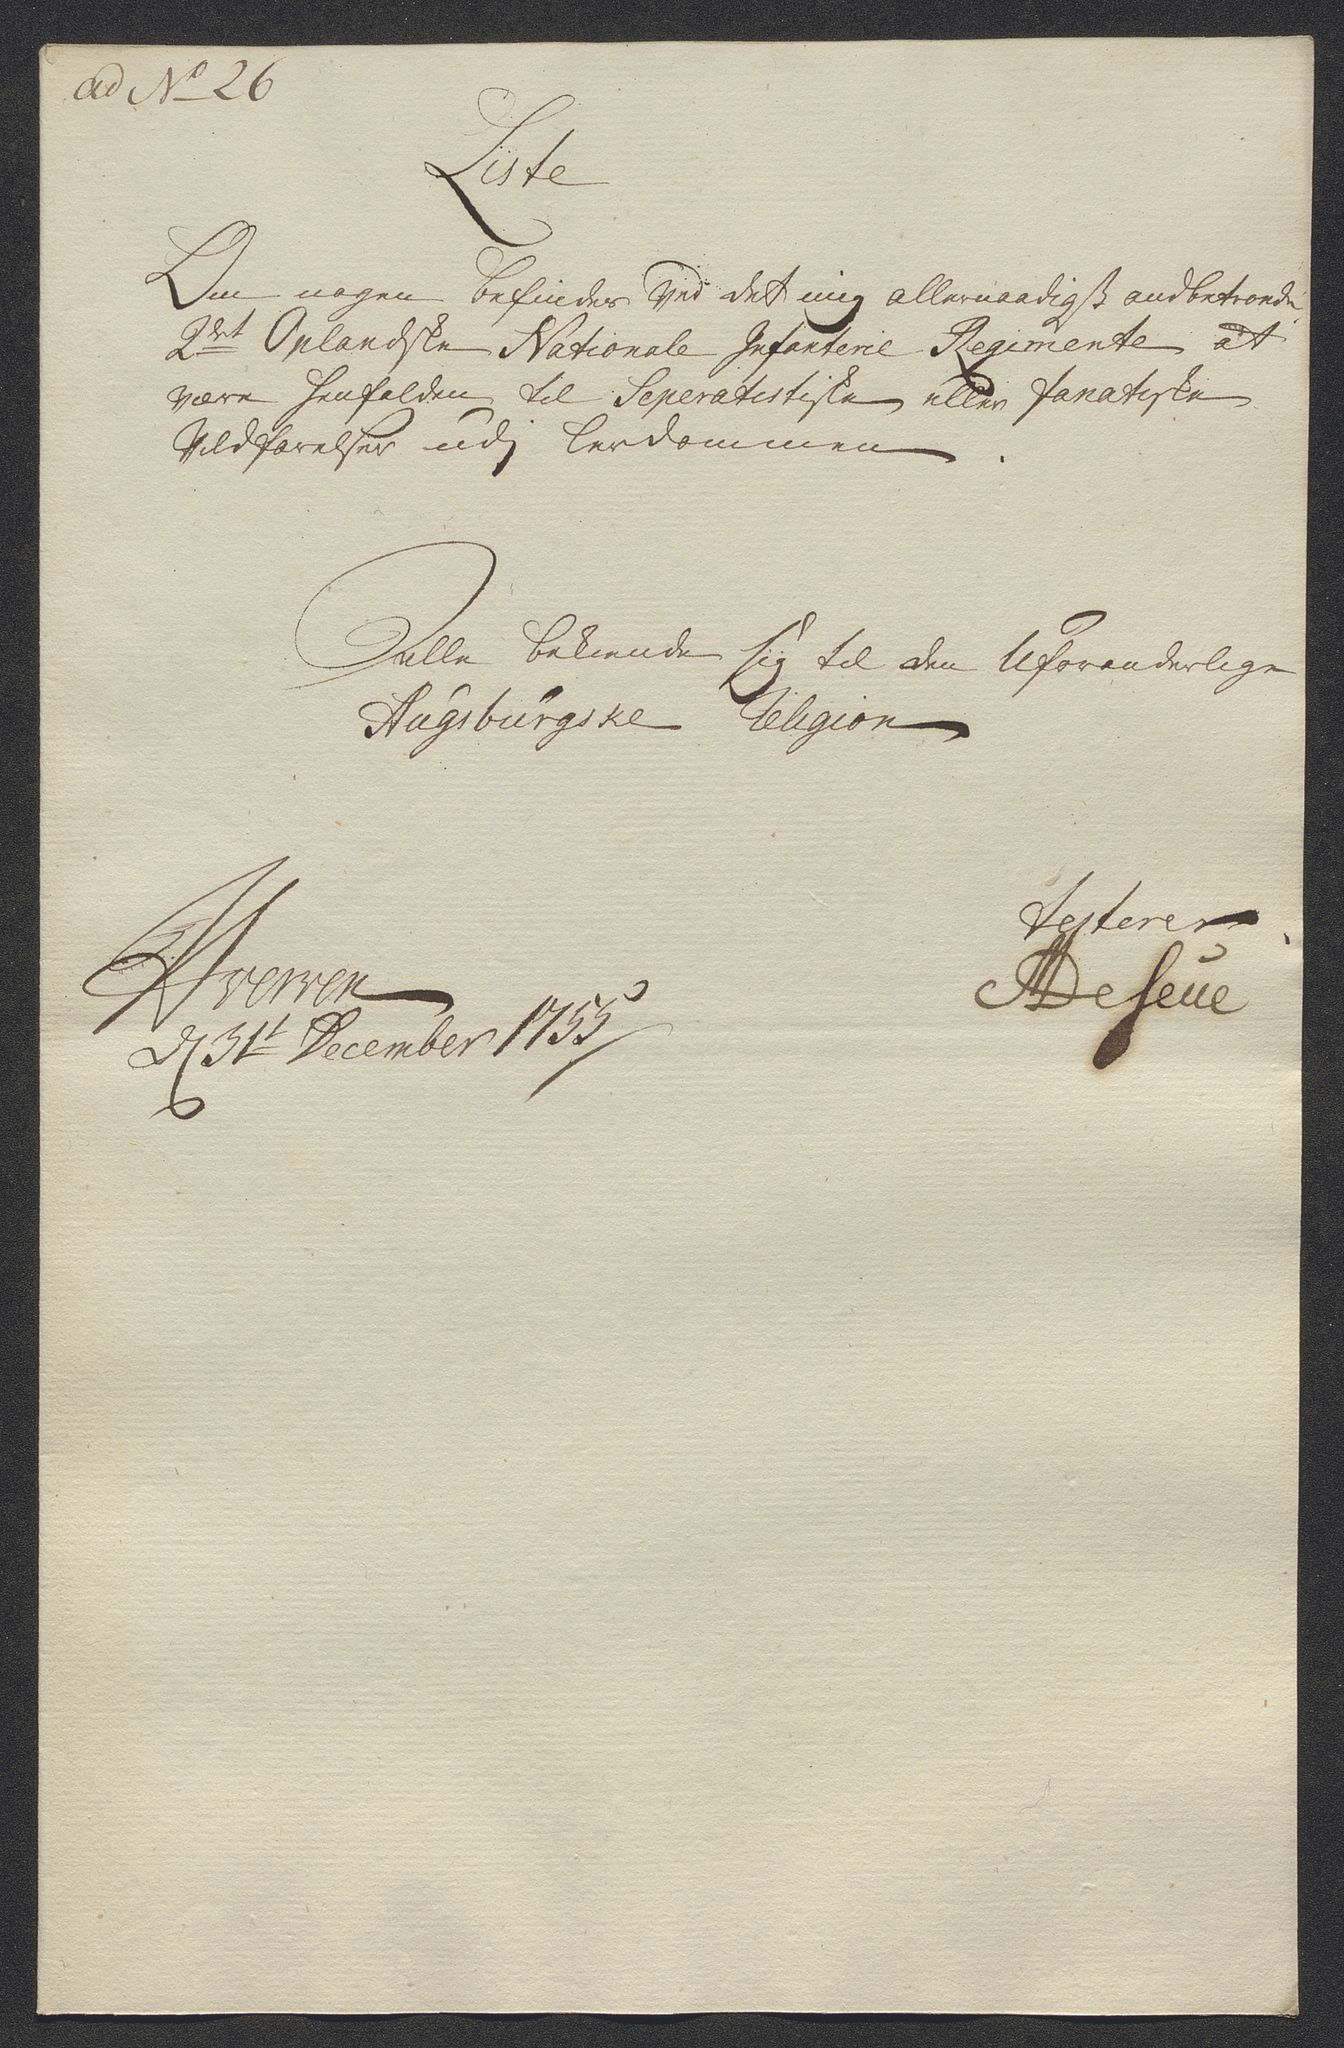 ad No 26
Liste
Om nogen befindes ved det mig allernaadigst andbetroede
2det Oplandske Nationale Infanterie Regimente at
være henfalden til Seperatistiske eller fanatiske
Vildfarelser udj lerdommen.
alle bekiende sig til den Uforanderlige
Augsburgske Religion
testerer
De Seue
d 31t December 1755